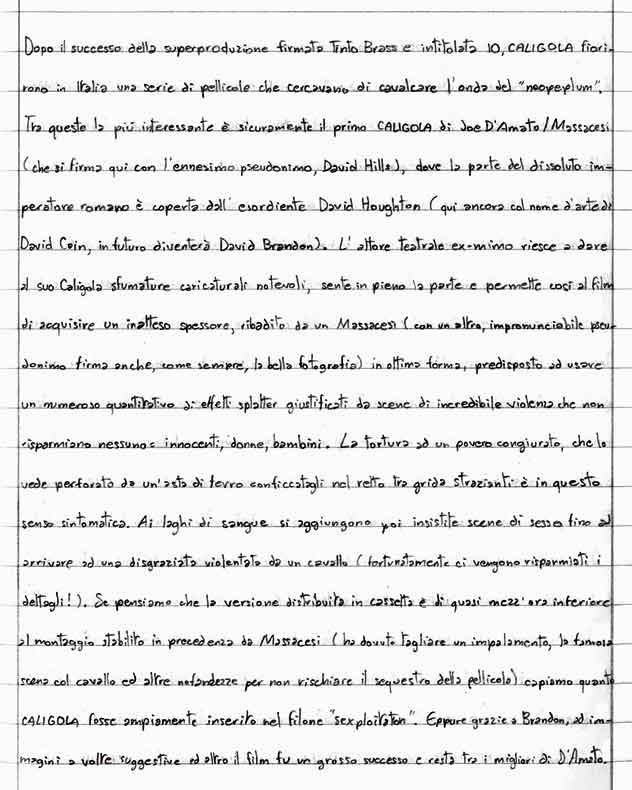 Dopo il successo della superproduzione firmata Tinto Brass e intitolata IO, CALIGOLA fiori-
rono in Italia una serie di pellicole che cercavano di cavalcare l'onda del "neopeplum".
Tra queste la più interessante è sicuramente il primo CALIGOLA di Joe D'Amato/Massacesi
(che si firma qui con l'ennesimo pseudonimo, David Hills), dove la parte del dissoluto im-
peratore romano è coperta dall'esordiente David Houghton (qui ancora col nome d'arte di
David Cain, in futuro diventerà David Brandon). L'attore teatrale ex-mimo riesce a dare
al suo Caligola sfumature caricaturali notevoli, sente in pieno la parte e permette così al film
di acquisire un inatteso spessore, ribadito da un Massacesi (con un altro, impronunciabile pseu-
donimo firma anche, come sempre, la bella fotografia) in ottima forma, predisposto ad usare
un numeroso quantitativo di effetti splatter giustificati da scene di incredibile violenza che non
risparmiano nessuno: innocenti, donne, bambini. La tortura ad un povero congiurato, che lo
vede perforato da un'asta di ferro conficcatagli nel retto tra grida strazianti è in questo
senso sintomatica. Ai laghi di sangue si aggiungono poi insistite scene di sesso fino ad
arrivare ad una disgraziata violentata da un cavallo (fortunatamente ci vengono risparmiati i
dettagli!). Se pensiamo che la versione distribuita in cassetta è di quasi mezz'ora inferiore
al montaggio stabilito in precedenza da Massacesi (ha dovuto tagliare un impalamento, la famosa
scena col cavallo ed altre nefandezze per non rischiare il sequestro della pellicola) capiamo quanto
CALIGOLA fosse ampiamente inserito nel filone "sexploitation". Eppure grazie a Brandon, ad im-
magini a volte suggestive ed altro il film fu un grosso successo e resta tra i migliori di D'Amato.